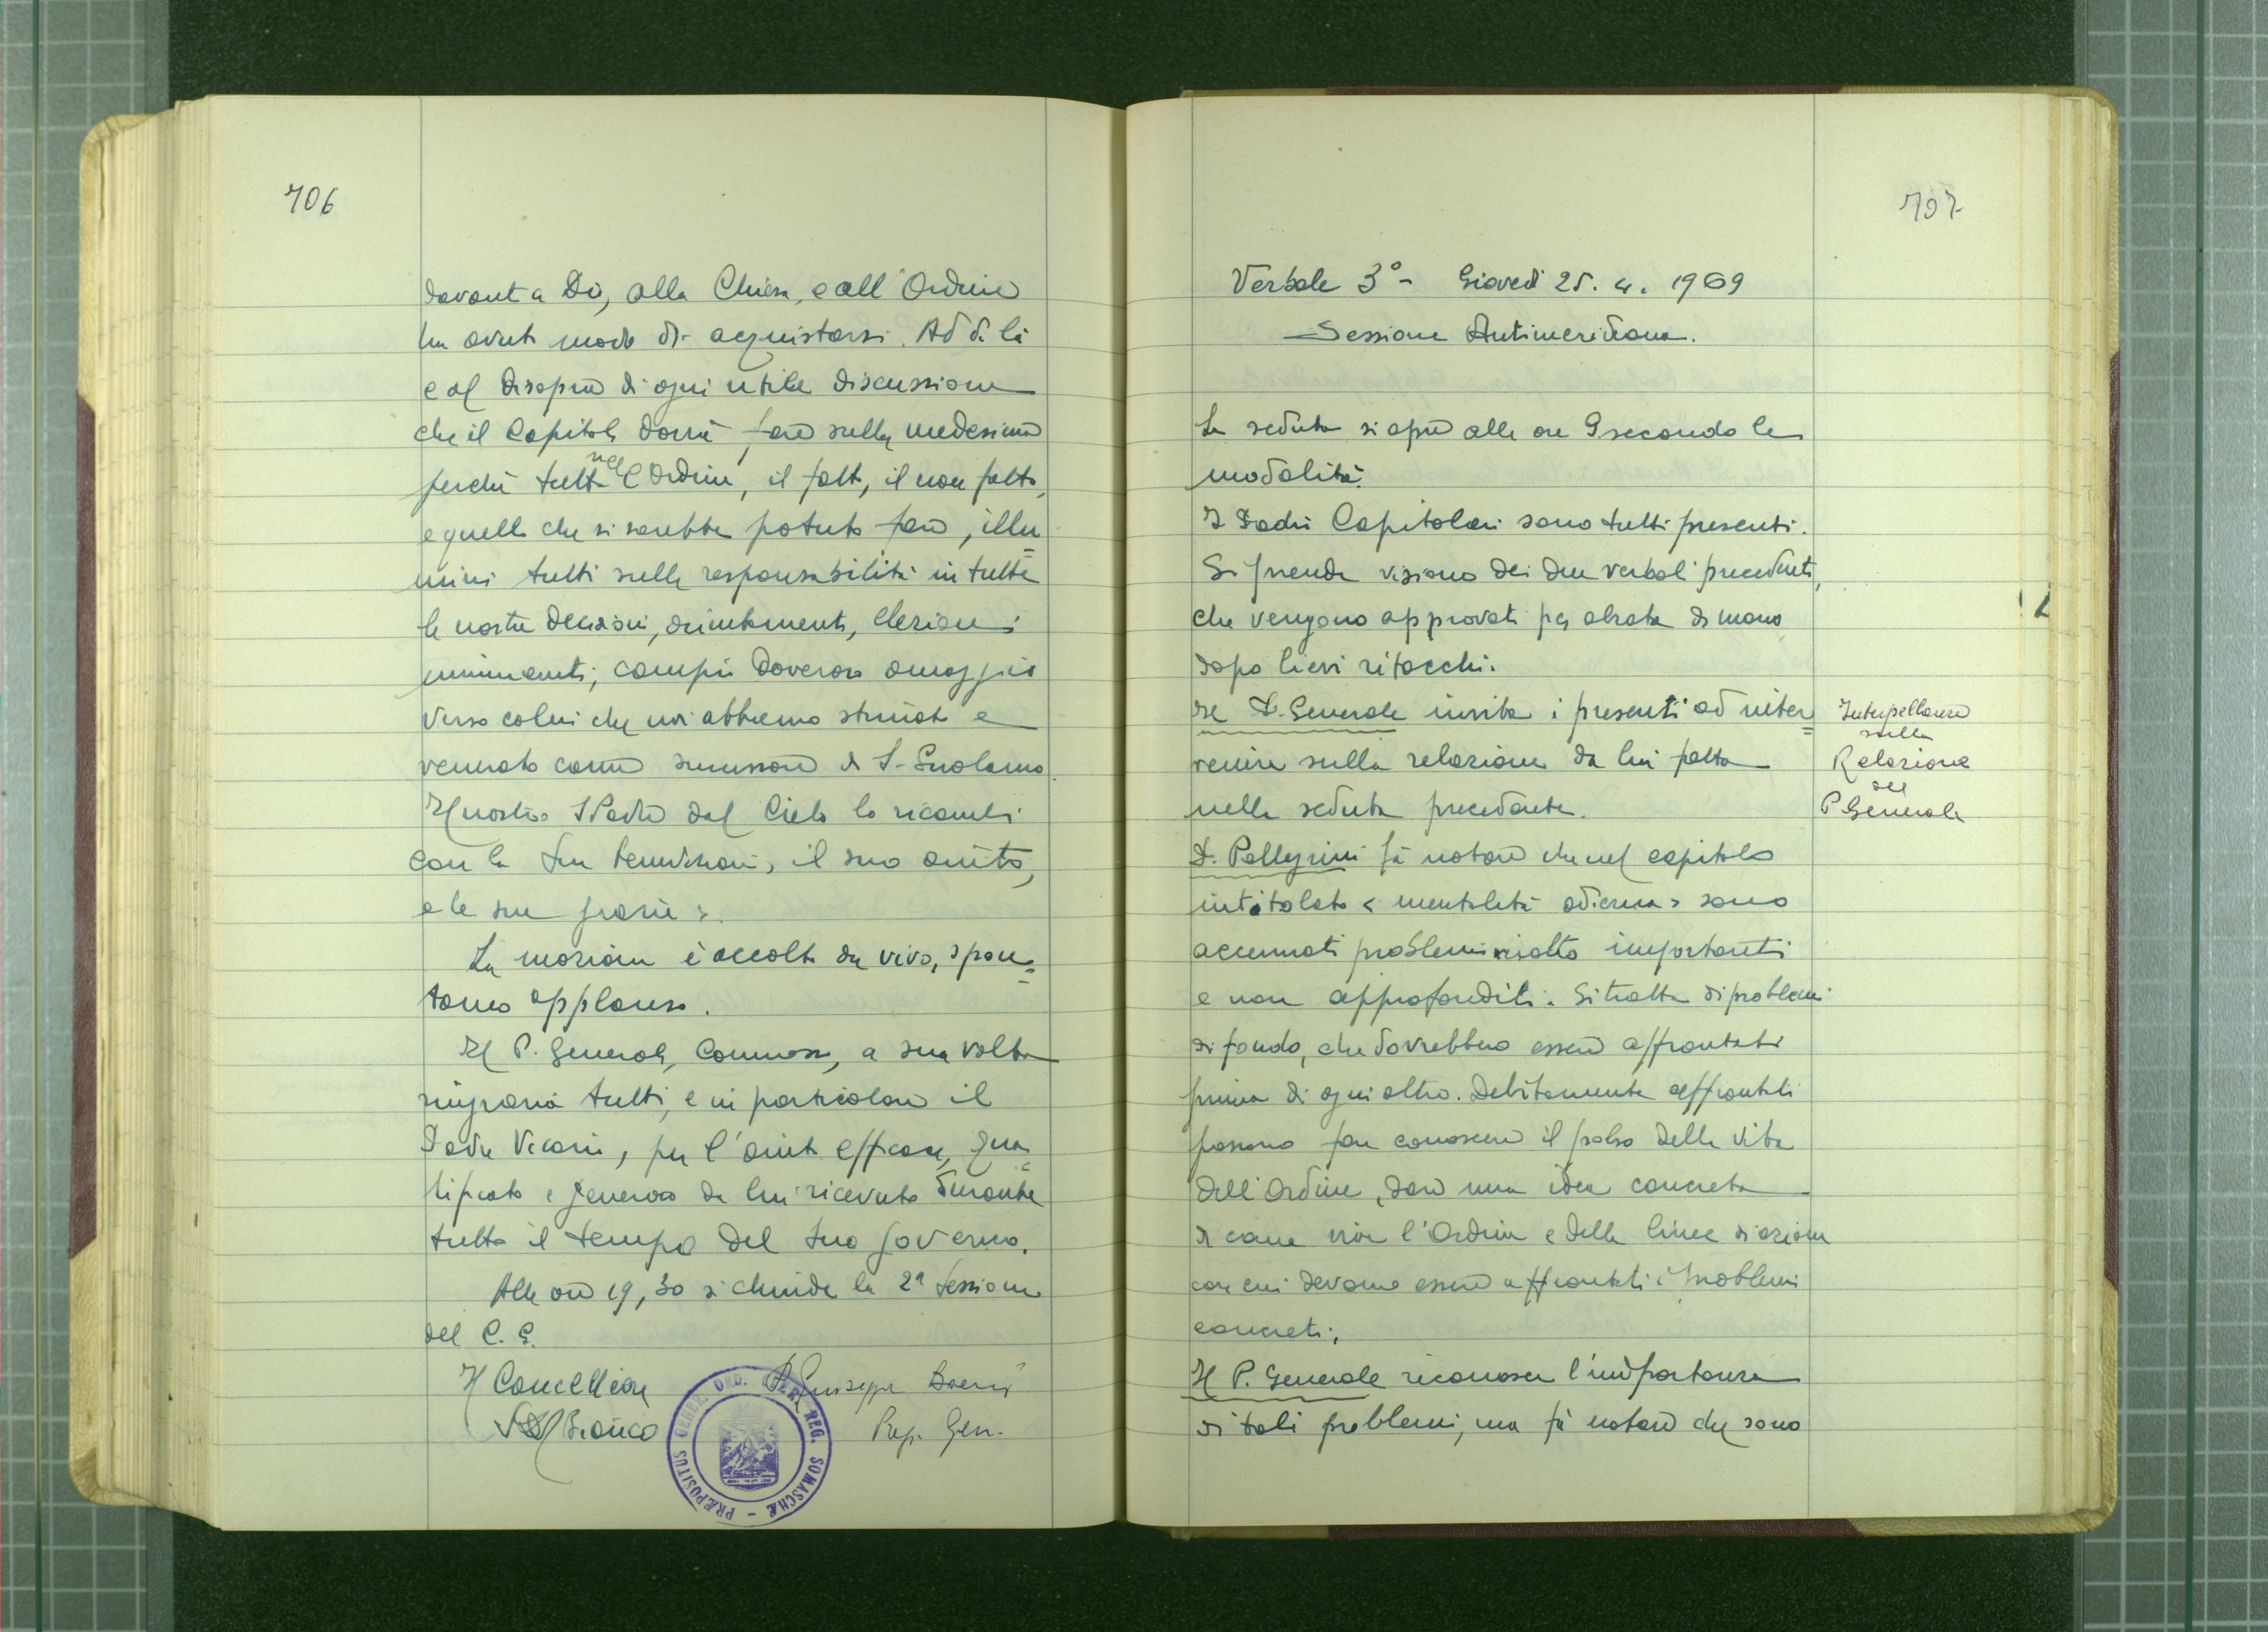 706
davanti a Dio, alla Chiesa, e all'Ordine
ha avuto modo di acquistarsi. Al di là
e al disopra di ogni utile discussione
che il Capitolo dovrà fare sulla medesima
perchè tutto nell'Ordine, il fatto, il non fatto,
e quello che si sarebbe potuto fare, illu=
mini tutti sulle responsabilità in tutte
le nostre decisioni, orientamenti, elezioni
imminenti; compie doveroso omaggio
verso colui che noi abbiamo stimato e
venerato come successore di S. Girolamo.
Il nostro S. Padre dal Cielo lo ricambi
con la sua benedizione, il suo aiuto,
e le sue grazie».
La mozione è accolta da vivo, spon=
taneo applauso.
Il P. Generale, commosso, a sua volta
ringrazia tutti, e in particolare il
Padre Vicario, per l'aiuto efficace, qua=
lificato e generoso da lui ricevuto durante
tutto il tempo del suo governo.
Alle ore 19,30 si chiude la 2ª sessione
del C. G.
Il Cancelliere P. Giuseppe Boeris
Bianco Prep. Gen.
PRÆPOSITUS GENER. ORD. CLER. REG. SOMASCHÆ
707
Verbale 3° - Giovedì 25. 4. 1969
Sessione Antimeridiana.
La seduta si apre alle ore 9 secondo le
modalità.
I Padri Capitolari sono tutti presenti.
Si prende visione dei due verbali precedenti,
che vengono approvati per alzata di mano
dopo lievi ritocchi.
Il P. Generale invita i presenti ad inter=
venire sulla relazione da lui fatta
nella seduta precedente.
Interpellanze
sulla
Relazione
del
P. Generale
P. Pellegrini fà notare che nel capitolo
intitolato «mentalità odierna» sono
accennati problemi molto importanti
e non approfonditi. Si tratta di problemi
di fondo, che dovrebbero essere affrontati
prima di ogni altro. Debitamente affrontati
possono far conoscere il polso della vita
dell'Ordine, dare una idea concreta
di come vive l'Ordine e delle linee di azione
con cui devono essere affrontati i problemi
concreti.
Il P. Generale riconosce l'importanza
di tali problemi, ma fà notare che sono